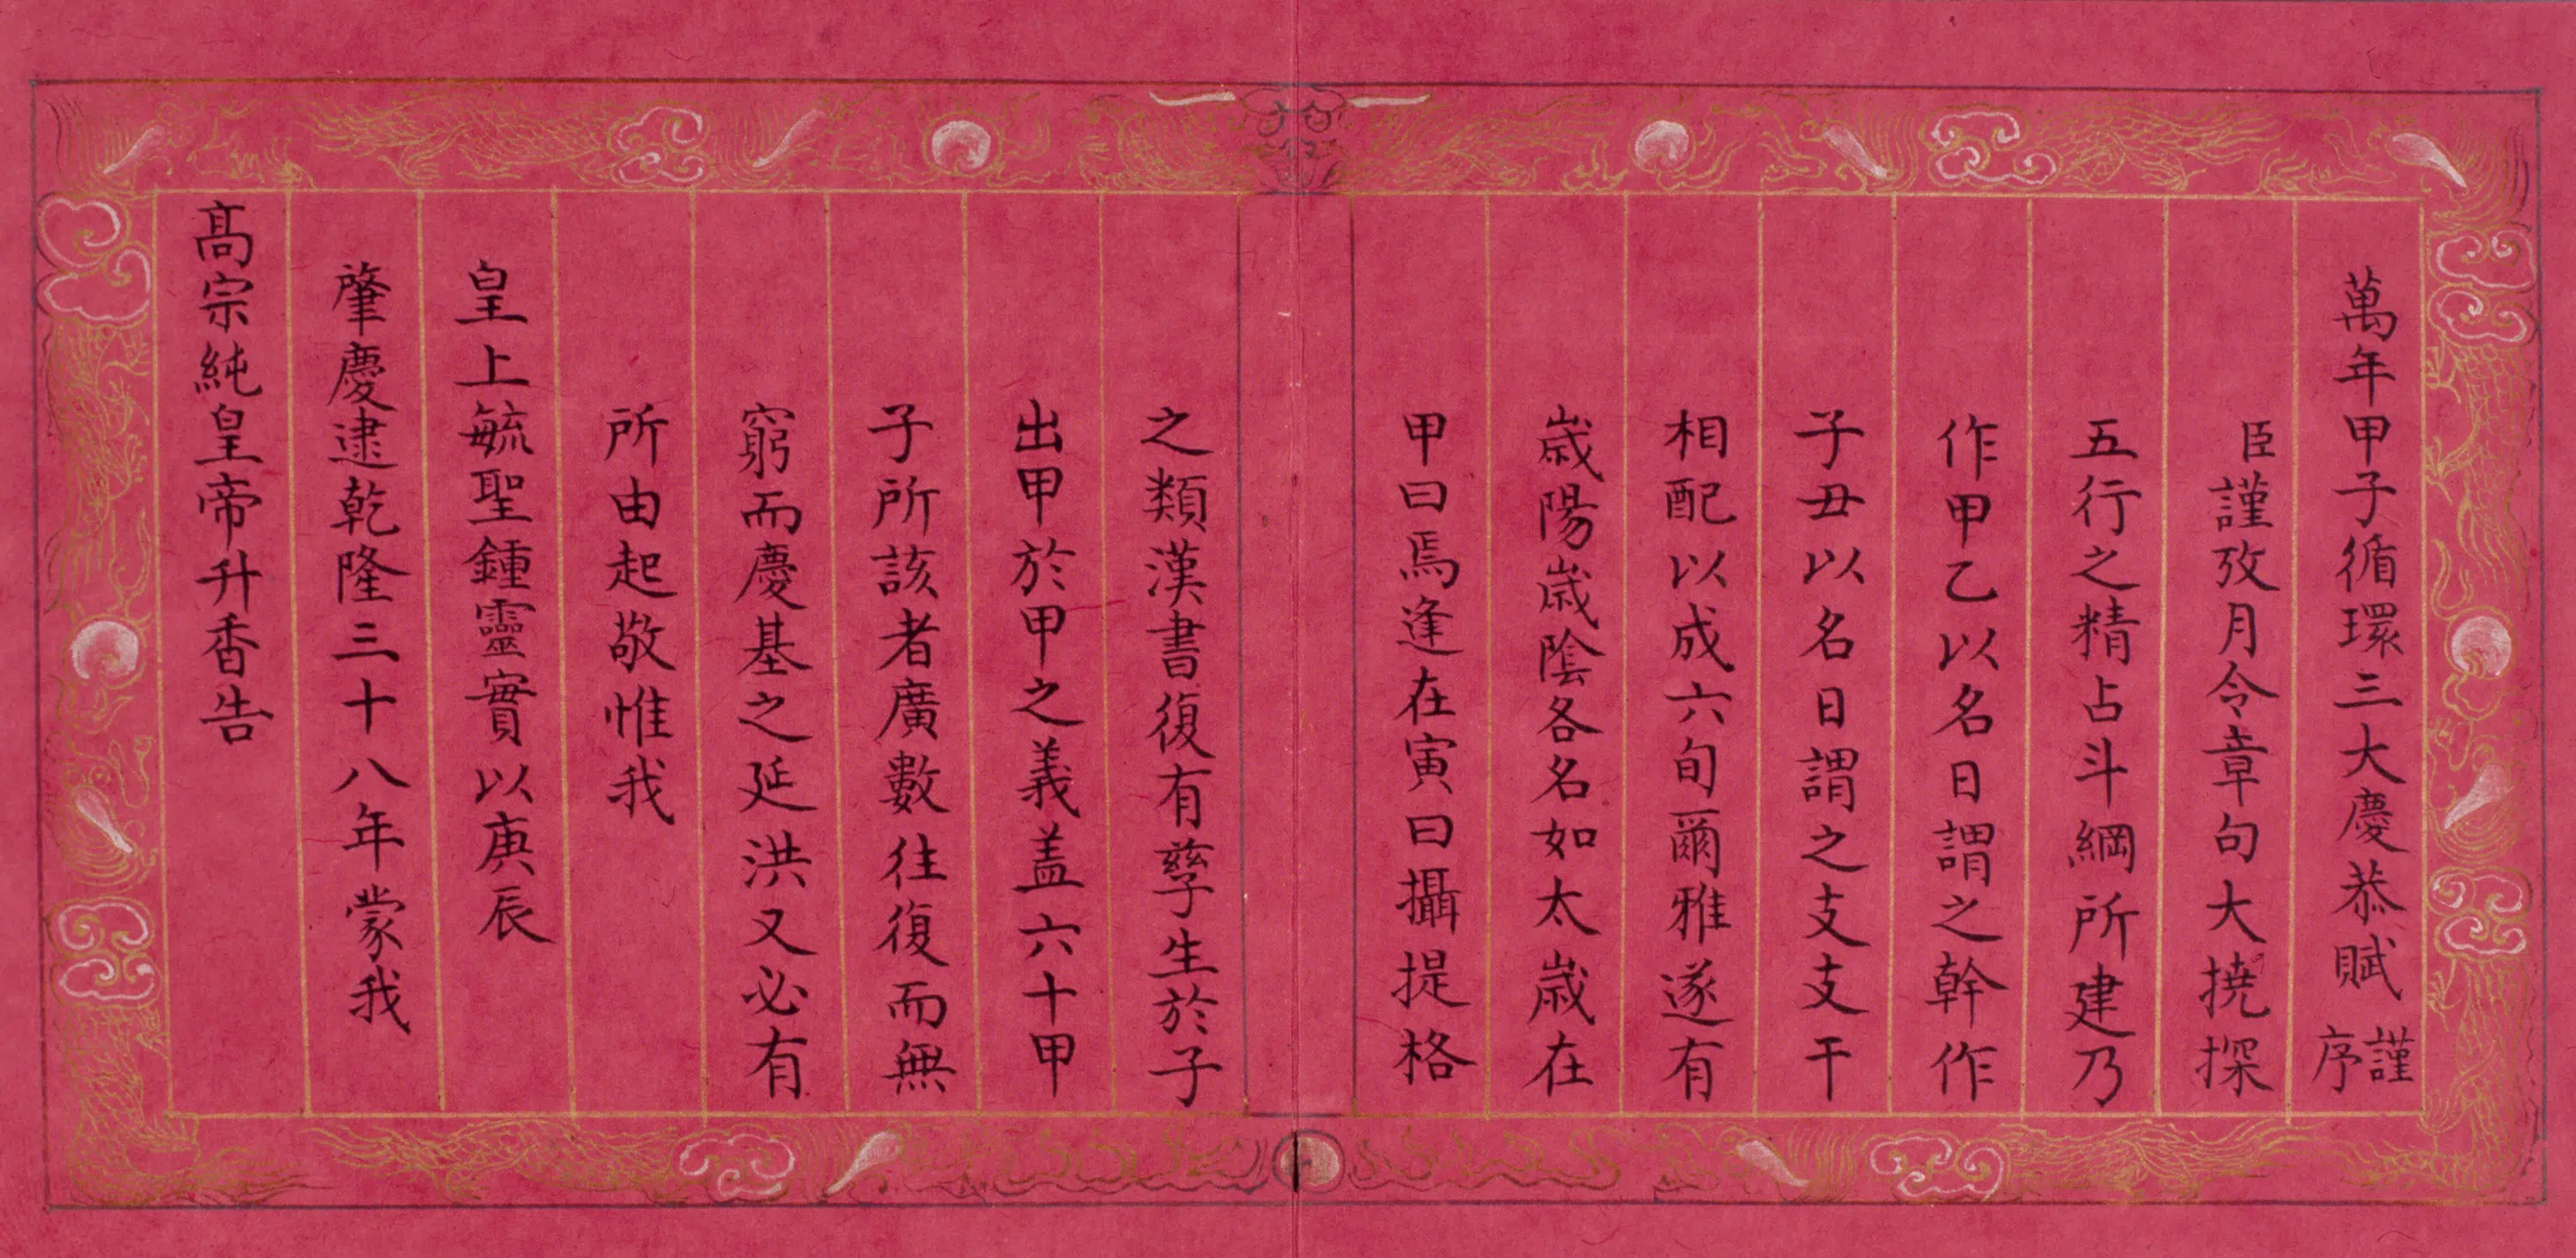 萬年甲子循環三大慶恭賦謹序
臣謹攷月令章句大撓探
五行之精占斗綱所建乃
作甲乙以名日謂之幹作
子丑以名日謂之支支干
相配以成六旬爾雅遂有
歳陽歳陰各名如太歳在
甲曰焉逢在寅曰攝提格
之類漢書復有孳生於子
出甲於甲之義盖六十甲
子所該者廣數往復而無
窮而慶基之延洪又必有
所由起敬惟我
皇上毓聖鍾靈實以庚辰
肇慶逮乾隆三十八年蒙我
髙宗純皇帝升香告